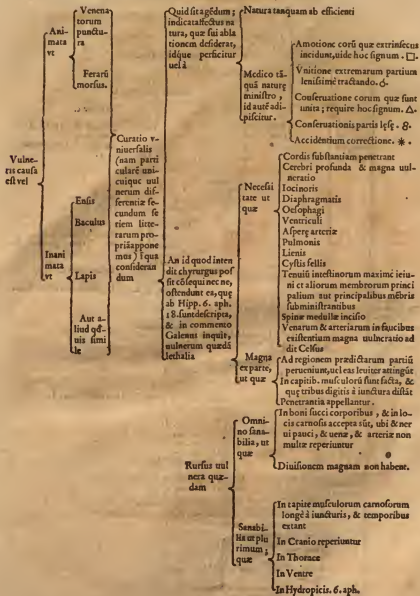 Vulne-
ris causa
est vel
Ani-
mata
vt
Venena
torum
punctu-
ra
Ferarũ
morsus.
Inani
mata
vt
Ensis
Baculus
Lapis
Aut a-
liud qd-
uis simi
le
Curatio v-
niuersalis
(nam parti
cularẽ uni-
cuique uul-
nerum dif-
ferentiæ se-
cundum se
riem litte-
rarum pro-
priãappone
mus) ĩ qua
consideran
dum
Quid sit agẽdum;
indicatăffectus na
tura, quæ sui abla
tionem desiderat,
idq́ue perficitur
uel à
Natura tanquam ab efficienti
Medico tã-
quã naturę
ministro,
id autẽ adi-
piscitur.
Amotione corũ quæ extrinsecus
incidunt, uide hoc signum. □.
Vnitione extremarum partium
lenissimè tractando. ♂.
Conseruatione eorum quæ sunt
unita; require hoc signum. △.
Conseruationis partis lęsę. 8.
Accidentium correctione. ✳.
An id quod inten
dit chyrurgus pos
sit cõsequi nec ne,
ostendunt ea, quę
ab Hipp. 6. aph.
18. sunt descripta,
& in commento
Galenus inquit,
uulnerum quædã
lethalia
Necessi
tate ut
quæ
Cordis substantiam penetrant
Cerebri profunda & magna uul-
neratio
Iocinoris
Diaphragmatis
Oesophagi
Ventriculi
Asperę arteriæ
Pulmonis
Lienis
Cystis fellis
Tenuiũ intestinorum maximè ieiu-
ni et aliorum membrorum princi
palium aut principalibus mẽbris
subministrantibus
Spinæ medullæ incisio
Venarum & arteriarum in faucibus
existentium magna uulneratio ad
dit Celsus
Magna
ex parte,
ut quæ
Ad regionem prædictarum partiũ
perueniunt, uel eas leuiter attingũt
In capitib. musculorũ sunt facta, &
quę tribus digitis à iunctura distãt
Penetrantia appellantur.
Rursus uul
nera quæ-
dam
Omni-
no sana-
bilia, ut
quæ
In boni succi corporibus, & in lo-
cis carnosis accepta sũt, ubi & ner
ui pauci, & uenæ, & arteriæ non
multæ reperiuntur
Diuisionem magnam non habent.
Sanabi-
lia ut plu
rimum;
quæ
In capite musculorum carnosorum
longè à iuncturis, & temporibus
extant
In Cranio reperiuntur
In Thorace
In Ventre
In Hydropicis. 6. aph.